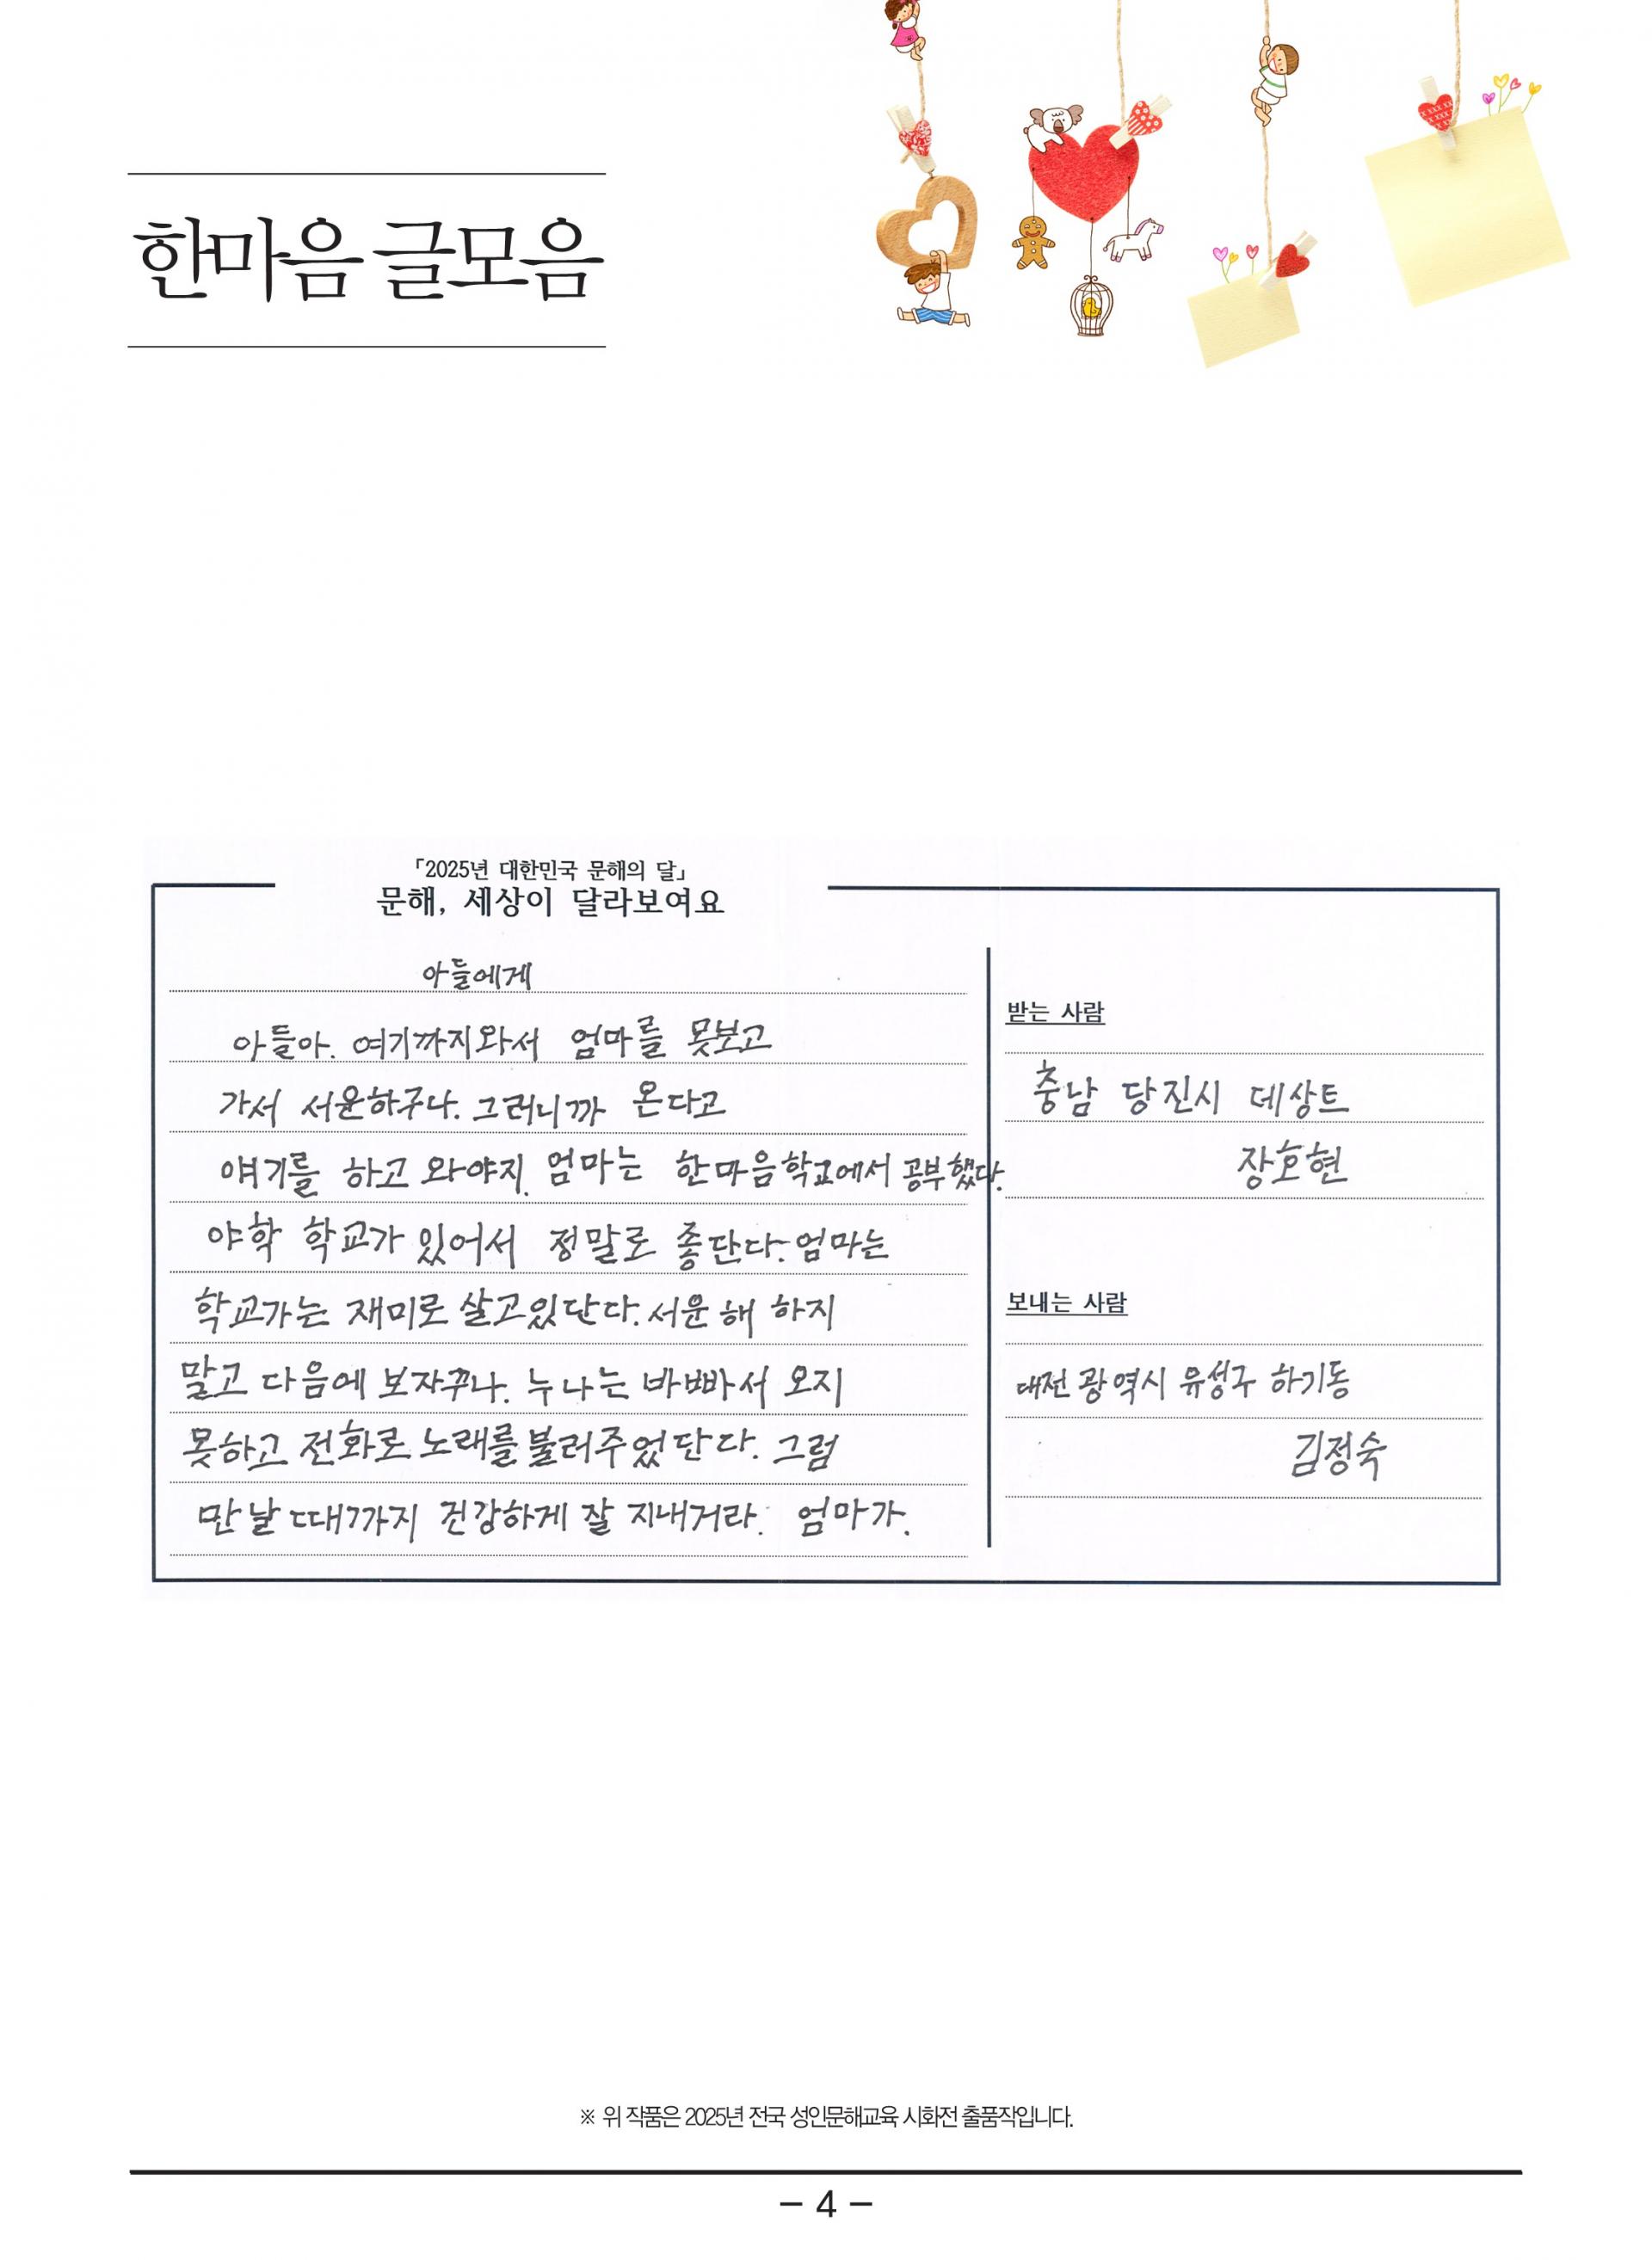 한마음 글모음
「2025년 대한민국 문해의 달」
문해, 세상이 달라보여요
아들에게
아들아. 여기까지와서 엄마를 못보고
가서 서운하구나. 그러니까 온다고
얘기를 하고 와야지. 엄마는 한마음학교에서 공부했다.
야학 학교가 있어서 정말로 좋단다. 엄마는
학교가는 재미로 살고있단다. 서운해 하지
말고 다음에 보자꾸나. 누나는 바빠서 오지
못하고 전화로 노래를 불러주었단다. 그럼
만날 때까지 건강하게 잘 지내거라. 엄마가.
받는 사람
충남 당진시 데상트
장호현
보내는 사람
대전광역시 유성구 하기동
김정숙
※ 위 작품은 2025년 전국 성인문해교육 시화전 출품작입니다.
– 4 –